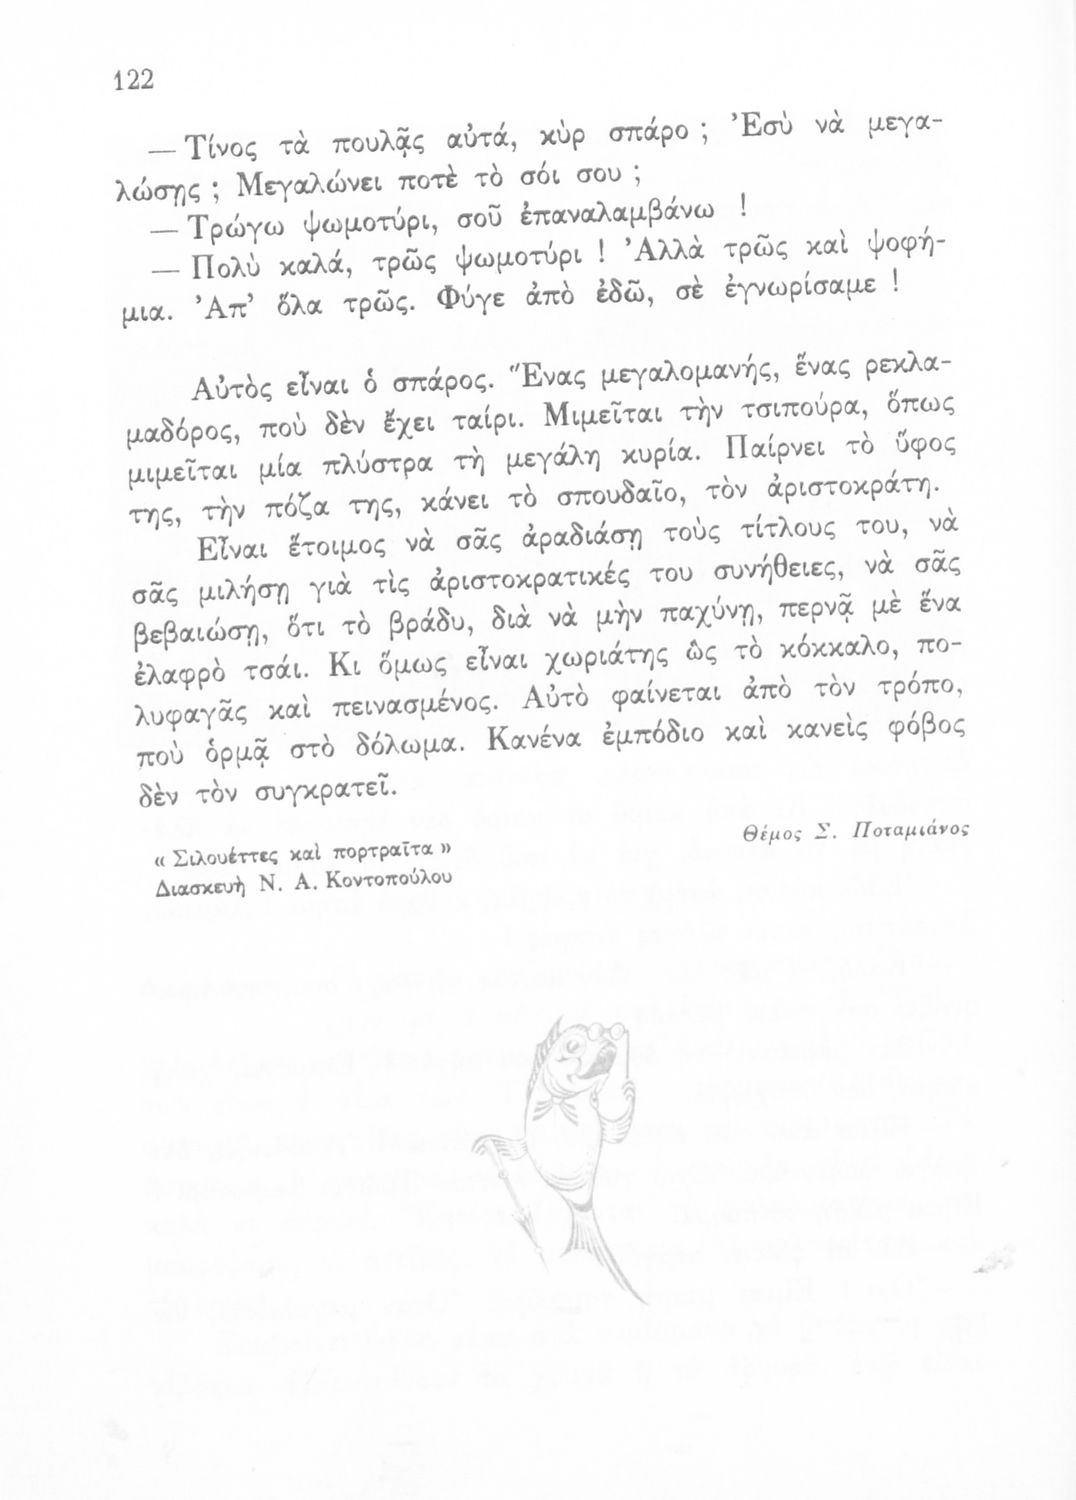 122
— Τίνος τὰ πουλᾷς αὐτά, κὺρ σπάρο ; Ἐσὺ νὰ μεγα-
λώσῃς ; Μεγαλώνει ποτὲ τὸ σόι σου ;
— Τρώγω ψωμοτύρι, σοῦ ἐπαναλαμβάνω !
— Πολὺ καλά, τρῶς ψωμοτύρι ! Ἀλλὰ τρῶς καὶ ψοφή-
μια. Ἀπ’ ὅλα τρῶς. Φύγε ἀπὸ ἐδῶ, σὲ ἐγνωρίσαμε !
Αὐτὸς εἶναι ὁ σπάρος. Ἕνας μεγαλομανής, ἕνας ρεκλα-
μαδόρος, ποὺ δὲν ἔχει ταίρι. Μιμεῖται τὴν τσιπούρα, ὅπως
μιμεῖται μία πλύστρα τὴ μεγάλη κυρία. Παίρνει τὸ ὕφος
της, τὴν πόζα της, κάνει τὸ σπουδαῖο, τὸν ἀριστοκράτη.
Εἶναι ἕτοιμος νὰ σᾶς ἀραδιάσῃ τοὺς τίτλους του, νὰ
σᾶς μιλήσῃ γιὰ τὶς ἀριστοκρατικές του συνήθειες, νὰ σᾶς
βεβαιώσῃ, ὅτι τὸ βράδυ, διὰ νὰ μὴν παχύνῃ, περνᾷ μὲ ἕνα
ἐλαφρὸ τσάι. Κι ὅμως εἶναι χωριάτης ὣς τὸ κόκκαλο, πο-
λυφαγᾶς καὶ πεινασμένος. Αὐτὸ φαίνεται ἀπὸ τὸν τρόπο,
ποὺ ὁρμᾷ στὸ δόλωμα. Κανένα ἐμπόδιο καὶ κανεὶς φόβος
δὲν τὸν συγκρατεῖ.
Θέμος Σ. Ποταμιάνος
« Σιλουέττες καὶ πορτραῖτα »
Διασκευὴ Ν. Α. Κοντοπούλου